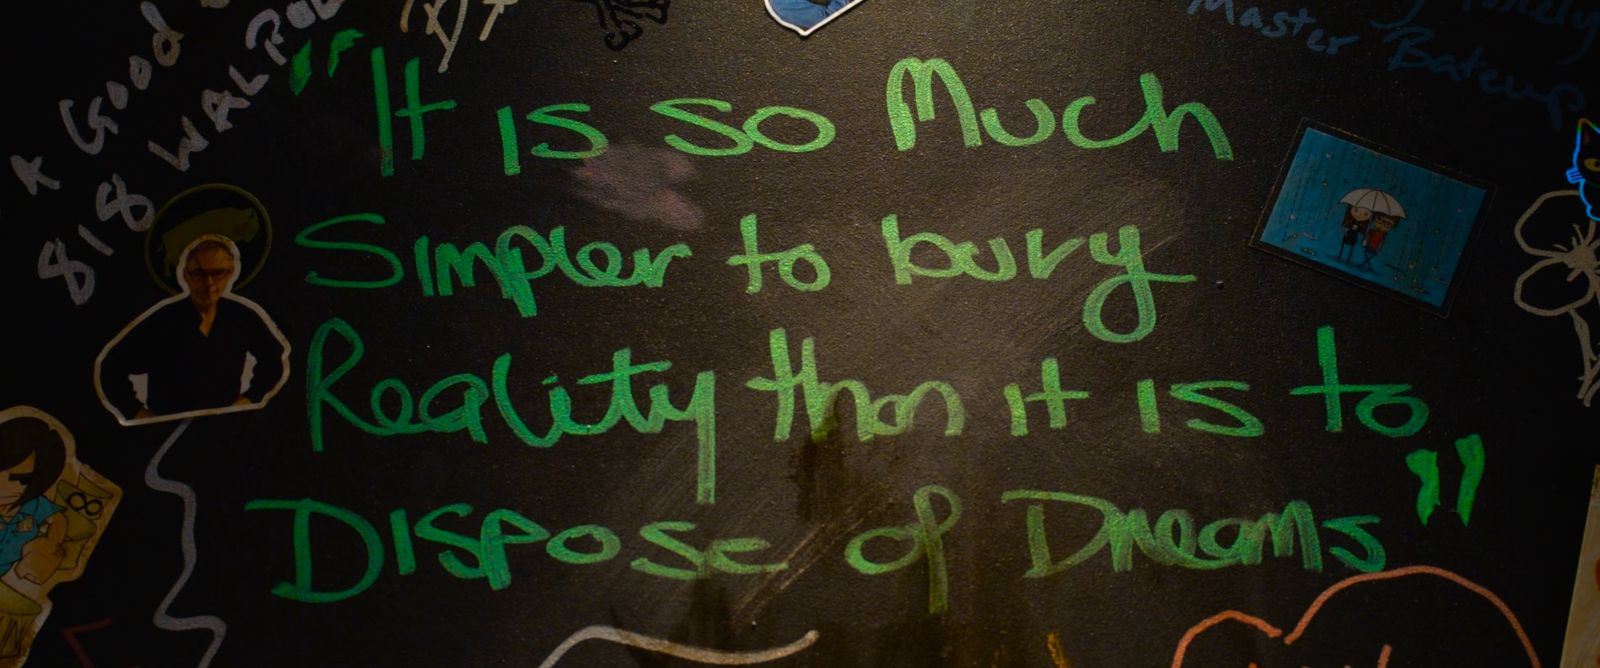 "It is so Much
Simpler to bury
Reality than it is to
Dispose of Dreams"
A Good
818 WALPOL
Master Bateup